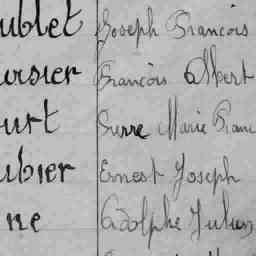 ublet Joseph François
ursier François Albert
urt Pierre Marie Franc
ubier Ernest Joseph
ne Adolphe Julien